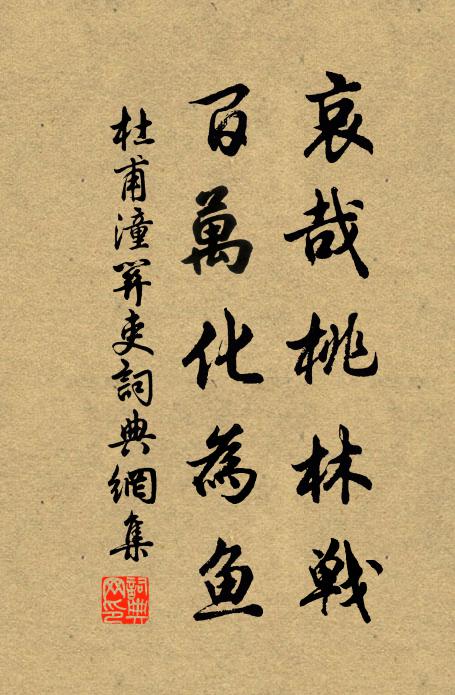 哀哉桃林戰
百萬化為魚
杜甫潼關吏詞典網集
詞典網印